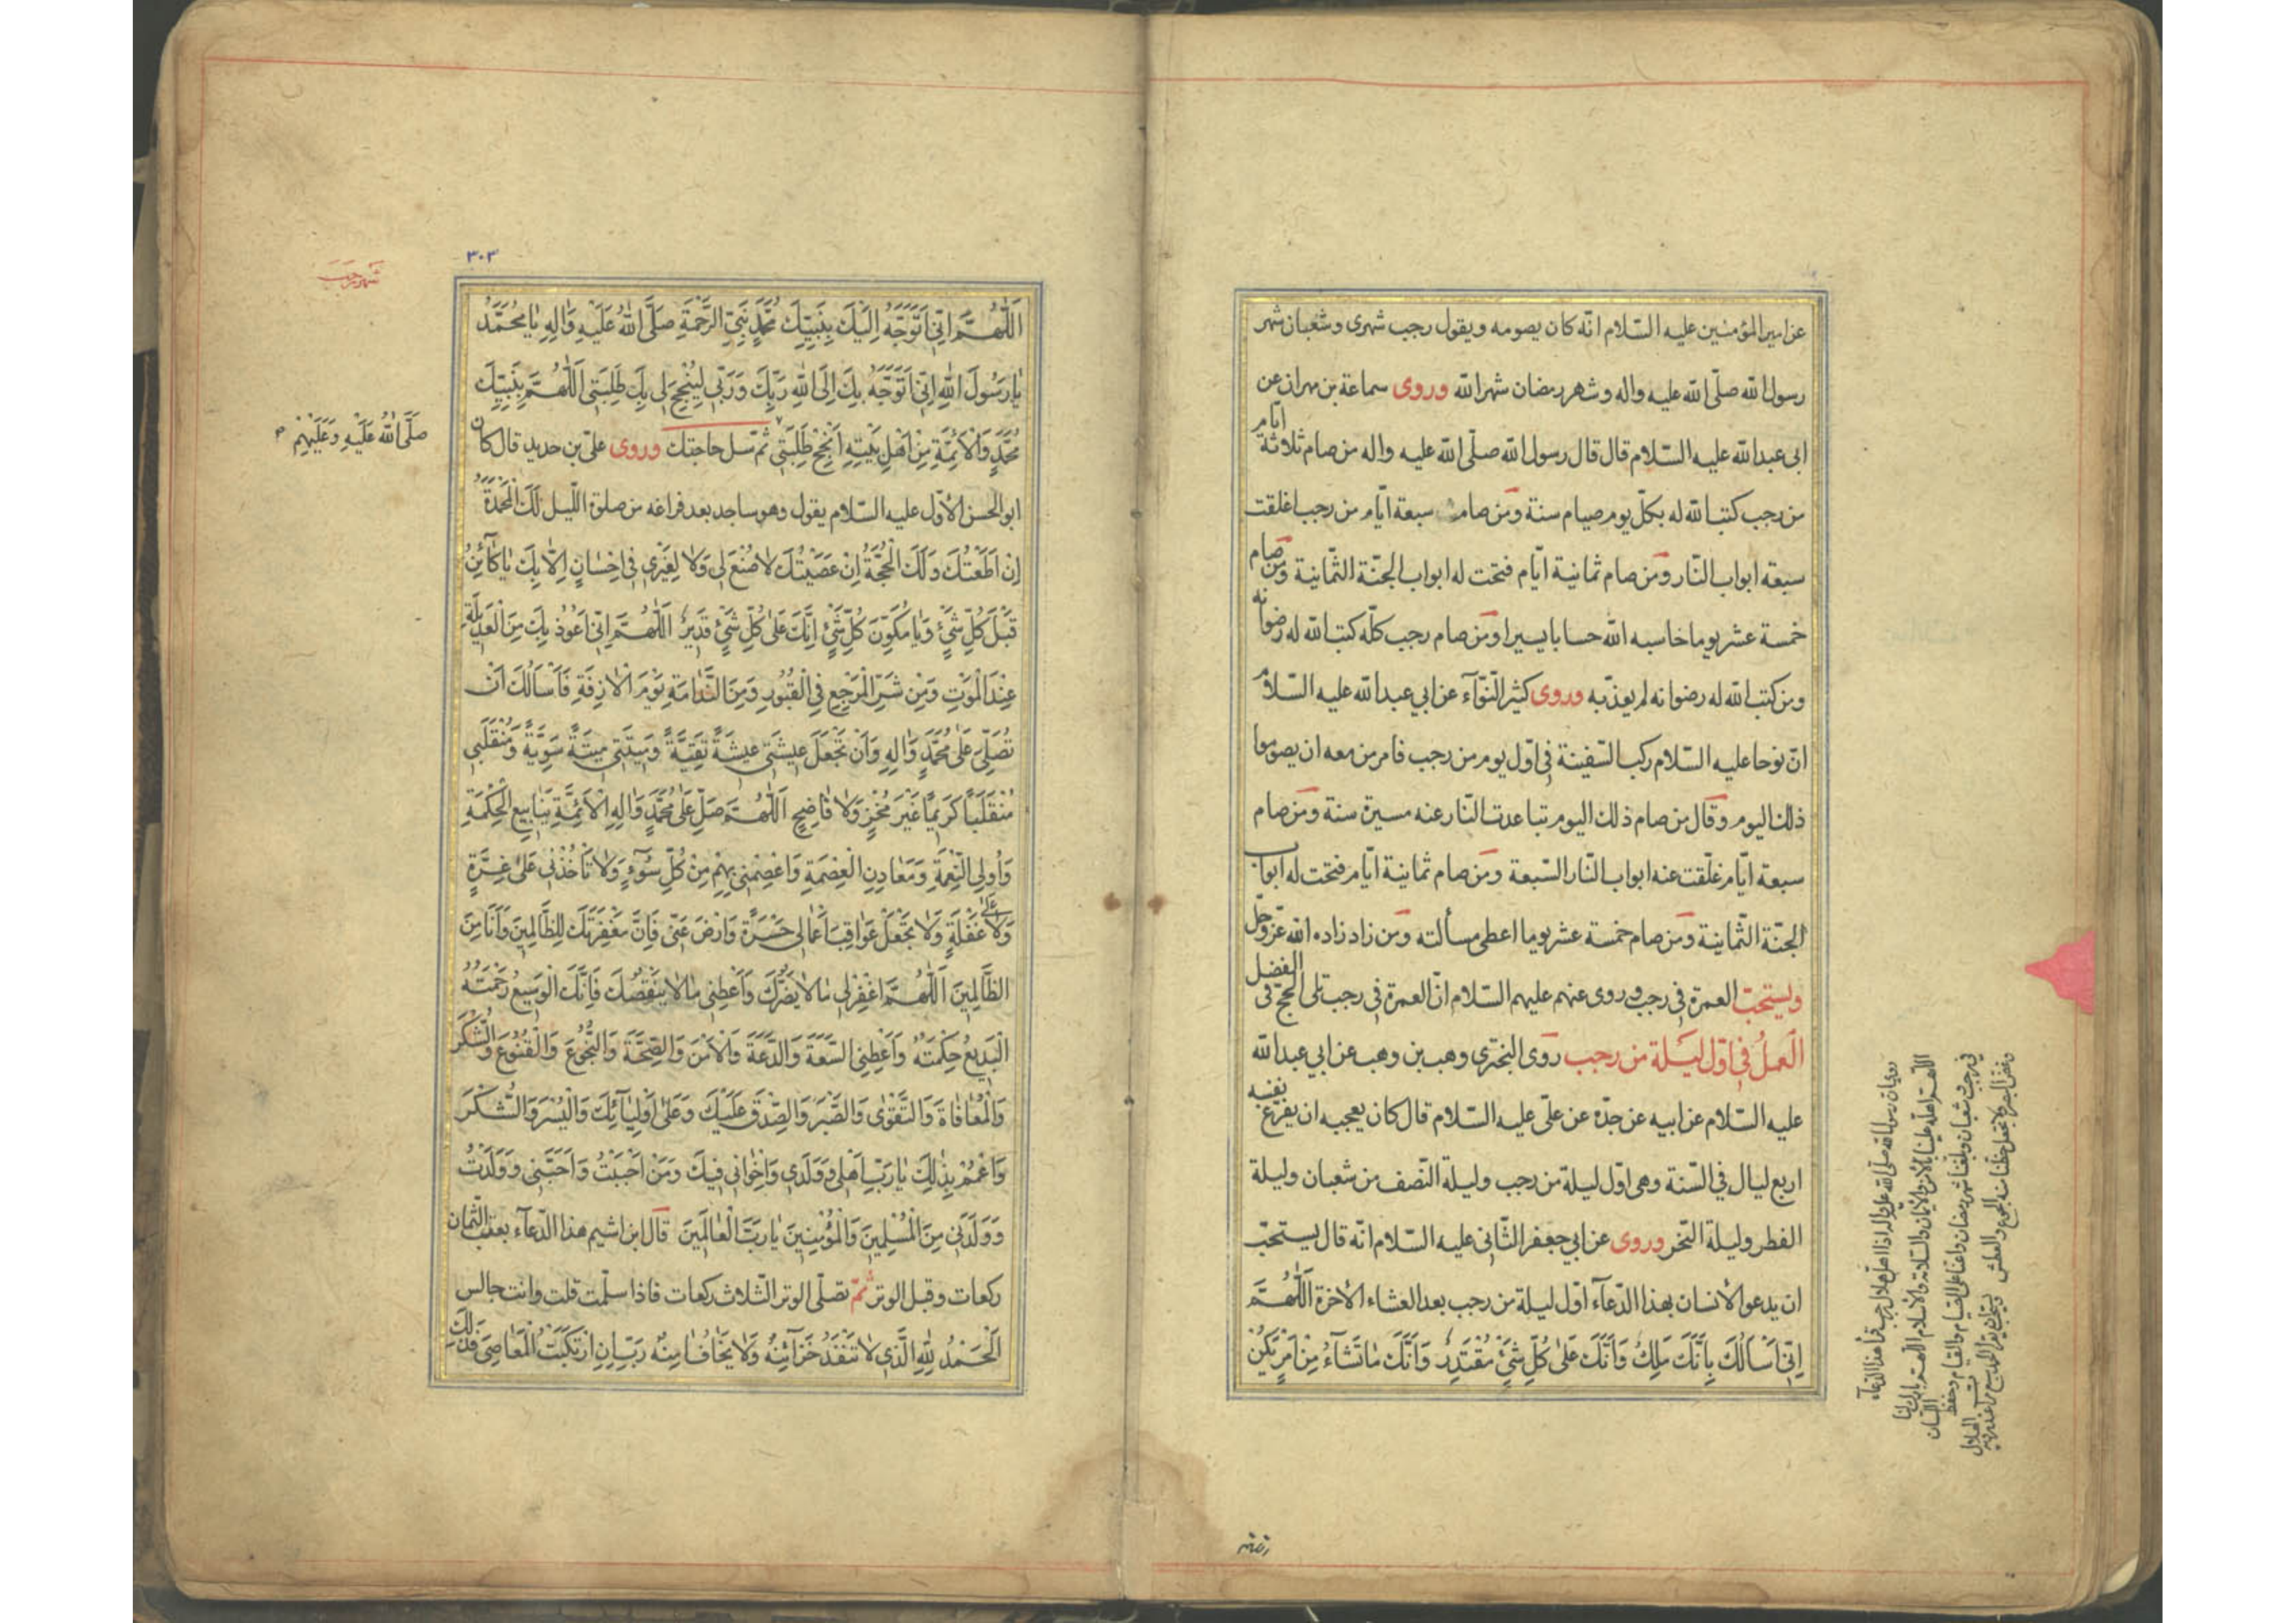 عن امير المؤمنين عليه السّلام انّه كان يصومه ويقول رجب شهرى وشعبان شهر
رسول الله صلّى الله عليه واله وشهر رمضان شهر الله وروى سماعة بن مهران عن
ابى عبد الله عليه السّلام قال قال رسول الله صلّى الله عليه واله من صام ثلاثة ايّام
من رجب كتب الله له بكلّ يوم صيام سنة ومن صام سبعة ايّام من رجب اغلقت
سبعة ابواب النّار ومن صام ثمانية ايّام فتحت له ابواب الجنّة الثّمانية ومن صام
خمسة عشر يوما حاسبه الله حسابا يسيرا ومن صام رجب كلّه كتب الله له رضوانه
ومن كتب الله له رضوانه لم يعذّبه وروى كثير النّوّآء عن ابي عبد الله عليه السّلام
انّ نوحا عليه السّلام ركب السّفينة في اوّل يوم من رجب فامر من معه ان يصوموا
ذلك اليوم وقال من صام ذلك اليوم تباعدت النّار عنه مسيرة سنة ومن صام
سبعة ايّام غلّقت عنه ابواب النّار السّبعة ومن صام ثمانية ايّام فتحت له ابواب
الجنّة الثّمانية ومن صام خمسة عشر يوما اعطى مسألته ومن زاد زاده الله عزّ وجلّ
ويستحبّ العمرة في رجب وروى عنهم عليهم السّلام انّ العمرة في رجب تلى الحجّ فى الفضل
العمل في اوّل ليلة من رجب روى البخترى وهب بن وهب عن ابي عبد الله
عليه السّلام عن ابيه عن جدّه عن علىّ عليه السّلام قال كان يعجبه ان يفرغ نفسه
اربع ليال في السّنة وهى اوّل ليلة من رجب وليلة النّصف من شعبان وليلة
الفطر وليلة النّحر وروى عن ابي جعفر الثّانى عليه السّلام انّه قال يستحبّ
ان يدعو الأنسان بهذا الدّعآء اوّل ليلة من رجب بعد العشاء الأخرة اَللّٰهُمَّ
اِنّى اَسْاَلُكَ بِاَنَّكَ مَلِكٌ وَاَنَّكَ عَلىٰ كُلِّ شَىْءٍ مُقْتَدِرٌ وَاَنَّكَ مٰا تَشٰآءُ مِنْ اَمْرٍ يَكُنْ
روى ان رسول الله صلى الله عليه واله اذا اهل هلال رجب قرأ هذا الدعآء
اللّهمّ اهلّه علينا بالامن والايمان والسلامة والاسلام
في رجب وشعبان وبلغنا شهر رمضان واعنا على الصيام والقيام وحفظ اللسان
وغض البصر ولا تجعل حظنا منه الجوع والعطش
٣٠٣
شهر رجب
اَللّٰهُمَّ اِنّى اَتَوَجَّهُ اِلَيْكَ بِنَبِيِّكَ مُحَمَّدٍ نَبِىِّ الرَّحْمَةِ صَلَّى اللهُ عَلَيْهِ وَاٰلِهِ يٰا مُحَمَّدُ
يٰا رَسُولَ اللهِ اِنّى اَتَوَجَّهُ بِكَ اِلَى اللهِ رَبِّكَ وَرَبّى لِيُنْجِحَ لى بِكَ طَلِبَتى اَللّٰهُمَّ بِنَبِيِّكَ
مُحَمَّدٍ وَالْاَئِمَّةِ مِنْ اَهْلِ بَيْتِهِ اَنْجِحْ طَلِبَتى ثمّ تسل حاجتك وروى علىّ بن حديد قال كان
صَلَّى اللهُ عَلَيْهِ وَعَلَيْهِمْ
ابو الحسن الأوّل عليه السّلام يقول وهو ساجد بعد فراغه من صلوة اللّيل لَكَ الْمَحْمِدَةُ
اِنْ اَطَعْتُكَ وَلَكَ الْحُجَّةُ اِنْ عَصَيْتُكَ لاٰ صُنْعَ لى وَلاٰ لِغَيْرى فى اِحْسٰانٍ اِلاّٰ بِكَ يٰا كٰآئِنُ
قَبْلَ كُلِّ شَىْءٍ وَيٰا مُكَوِّنَ كُلِّ شَىْءٍ اِنَّكَ عَلىٰ كُلِّ شَىْءٍ قَديرٌ اَللّٰهُمَّ اِنّى اَعُوذُ بِكَ مِنَ الْعَديلَةِ
عِنْدَ الْمَوْتِ وَمِنْ شَرِّ الْمَرْجِعِ فِى الْقُبُورِ وَمِنَ النَّدٰامَةِ يَوْمَ الْاٰزِفَةِ فَاَسْاَلُكَ اَنْ
تُصَلِّىَ عَلىٰ مُحَمَّدٍ وَاٰلِهِ وَاَنْ تَجْعَلَ عيشَتى عيشَةً نَقِيَّةً وَميتَتى ميتَةً سَوِيَّةً وَمُنْقَلَبى
مُنْقَلَبًا كَريمًا غَيْرَ مُخْزٍ وَلاٰ فٰاضِحٍ اَللّٰهُمَّ صَلِّ عَلىٰ مُحَمَّدٍ وَاٰلِهِ الْاَئِمَّةِ يَنٰابيعِ الْحِكْمَةِ
وَاُولِى النِّعْمَةِ وَمَعٰادِنِ الْعِصْمَةِ وَاعْصِمْنى بِهِمْ مِنْ كُلِّ سُوٓءٍ وَلاٰ تَأْخُذْنى عَلىٰ غِرَّةٍ
وَلاٰ عَلىٰ غَفْلَةٍ وَلاٰ تَجْعَلْ عَوٰاقِبَ اَعْمٰالى حَسْرَةً وَارْضَ عَنّى فَاِنَّ مَغْفِرَتَكَ لِلظّٰالِمينَ وَاَنَا مِنَ
الظّٰالِمينَ اَللّٰهُمَّ اغْفِرْ لى مٰا لاٰ يَضُرُّكَ وَاَعْطِنى مٰا لاٰ يَنْقُصُكَ فَاِنَّكَ الْوَسيعُ رَحْمَتُهُ
الْبَديعُ حِكْمَتُهُ وَاَعْطِنِى السَّعَةَ وَالدَّعَةَ وَالْاَمْنَ وَالصِّحَّةَ وَالنُّجُوعَ وَالْقُنُوعَ وَالشُّكْرَ
وَالْمُعٰافٰاةَ وَالتَّقْوٰى وَالصَّبْرَ وَالصِّدْقَ عَلَيْكَ وَعَلىٰ اَوْلِيٰآئِكَ وَالْيُسْرَ وَالشُّكْرَ
وَاعْمُمْ بِذٰلِكَ يٰا رَبِّ اَهْلى وَوَلَدى وَاِخْوٰانى فيكَ وَمَنْ اَحْبَبْتُ وَاَحَبَّنى وَوَلَدْتُ
وَوَلَدَنى مِنَ الْمُسْلِمينَ وَالْمُؤْمِنينَ يٰا رَبَّ الْعٰالَمينَ قال ابن اشيم هذا الدّعآء بعقب الثّمان
ركعات وقبل الوتر ثمّ تصلّى الوتر الثّلاث ركعات فاذا سلّمت قلت وانت جالس
اَلْحَمْدُ لِلّٰهِ الَّذى لاٰ تَنْفَدُ خَزٰآئِنُهُ وَلاٰ يَخٰافُ اٰمِنُهُ رَبِّ اِنِ ارْتَكَبْتُ الْمَعٰاصِىَ فَذٰلِكَ